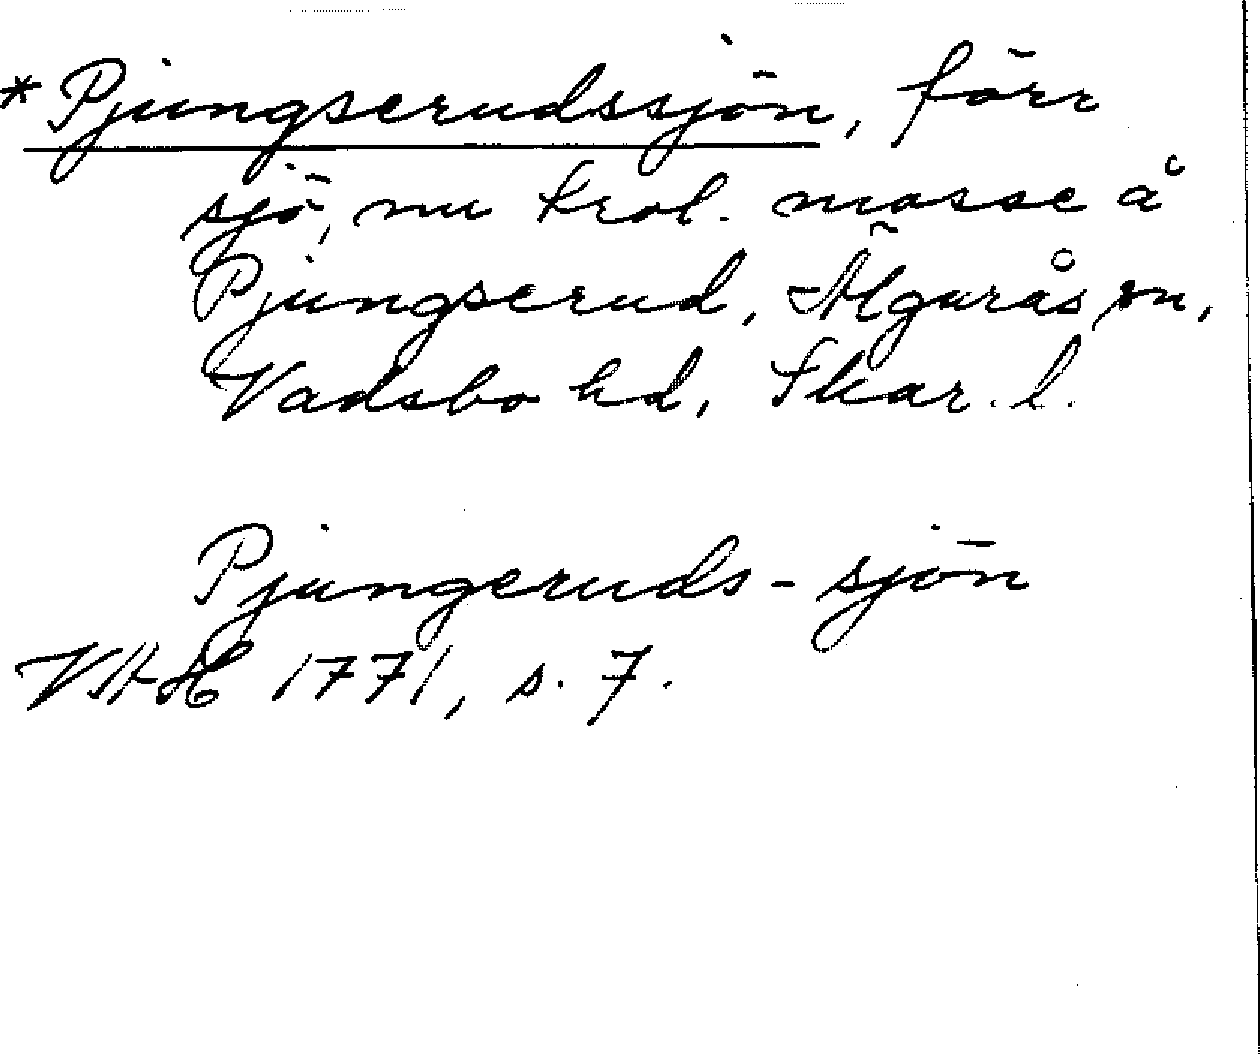 *Pjungserudssjön, förr
sjö, nu trol. mosse å
Pjungserud, Älgarås sn,
Vadsbo hd, Skar. l.
Pjungeruds-sjön
1771, s. 7.